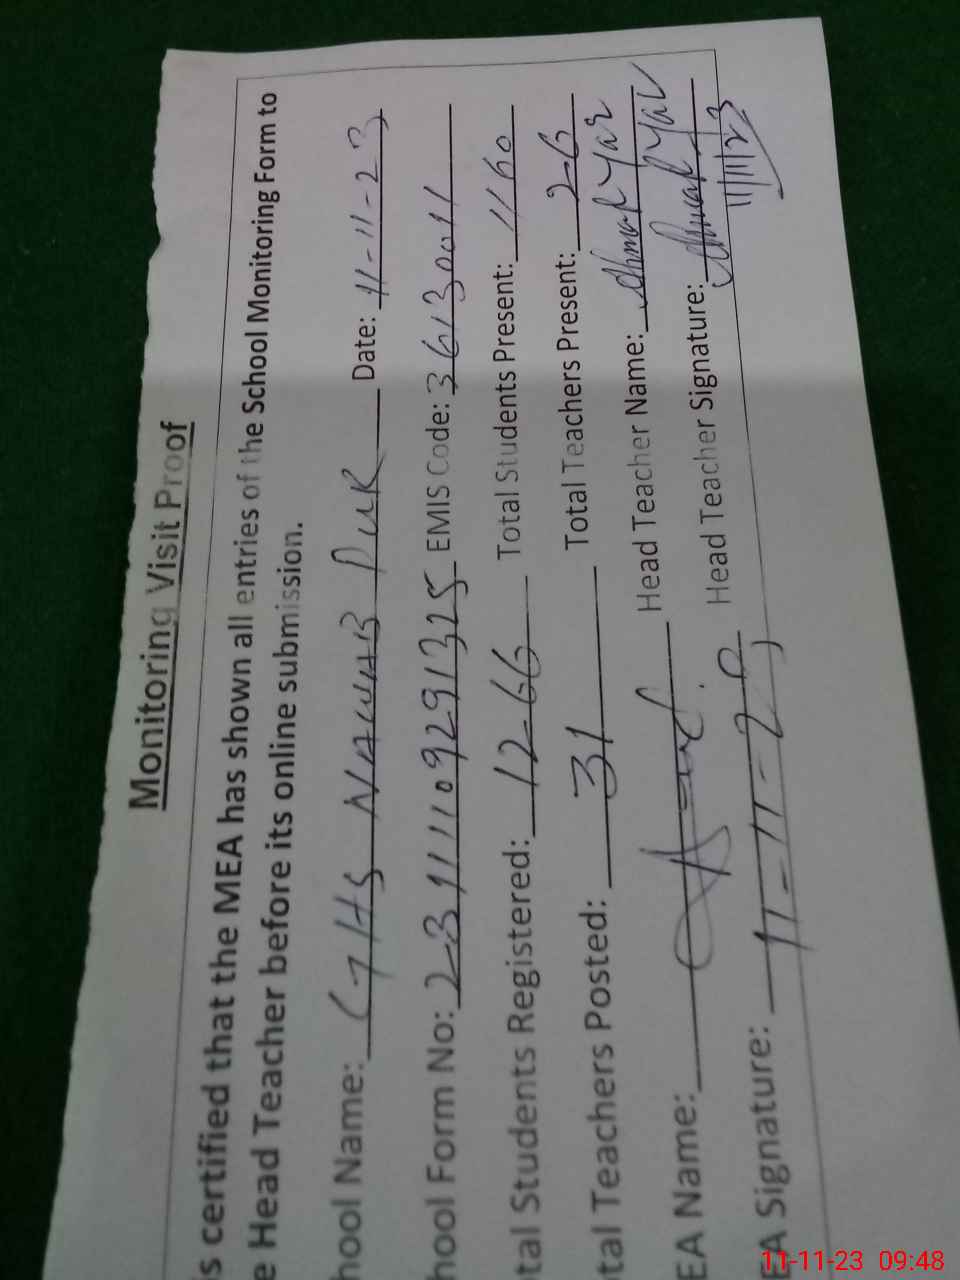 Monitoring Visit Proof
s certified that the MEA has shown all entries of the School Monitoring Form to
e Head Teacher before its online submission.
hool Name: GHS NAWAB PUR Date: 11-11-23
hool Form No: 23111109291325 EMIS Code: 36130011
tal Students Registered: 1266 Total Students Present: 1160
tal Teachers Posted: 31 Total Teachers Present: 26
EA Name: Head Teacher Name: Ahmad Yar
EA Signature: 11-11-23 Head Teacher Signature: Ahmad Yar
11/11/23
11-11-23 09:48